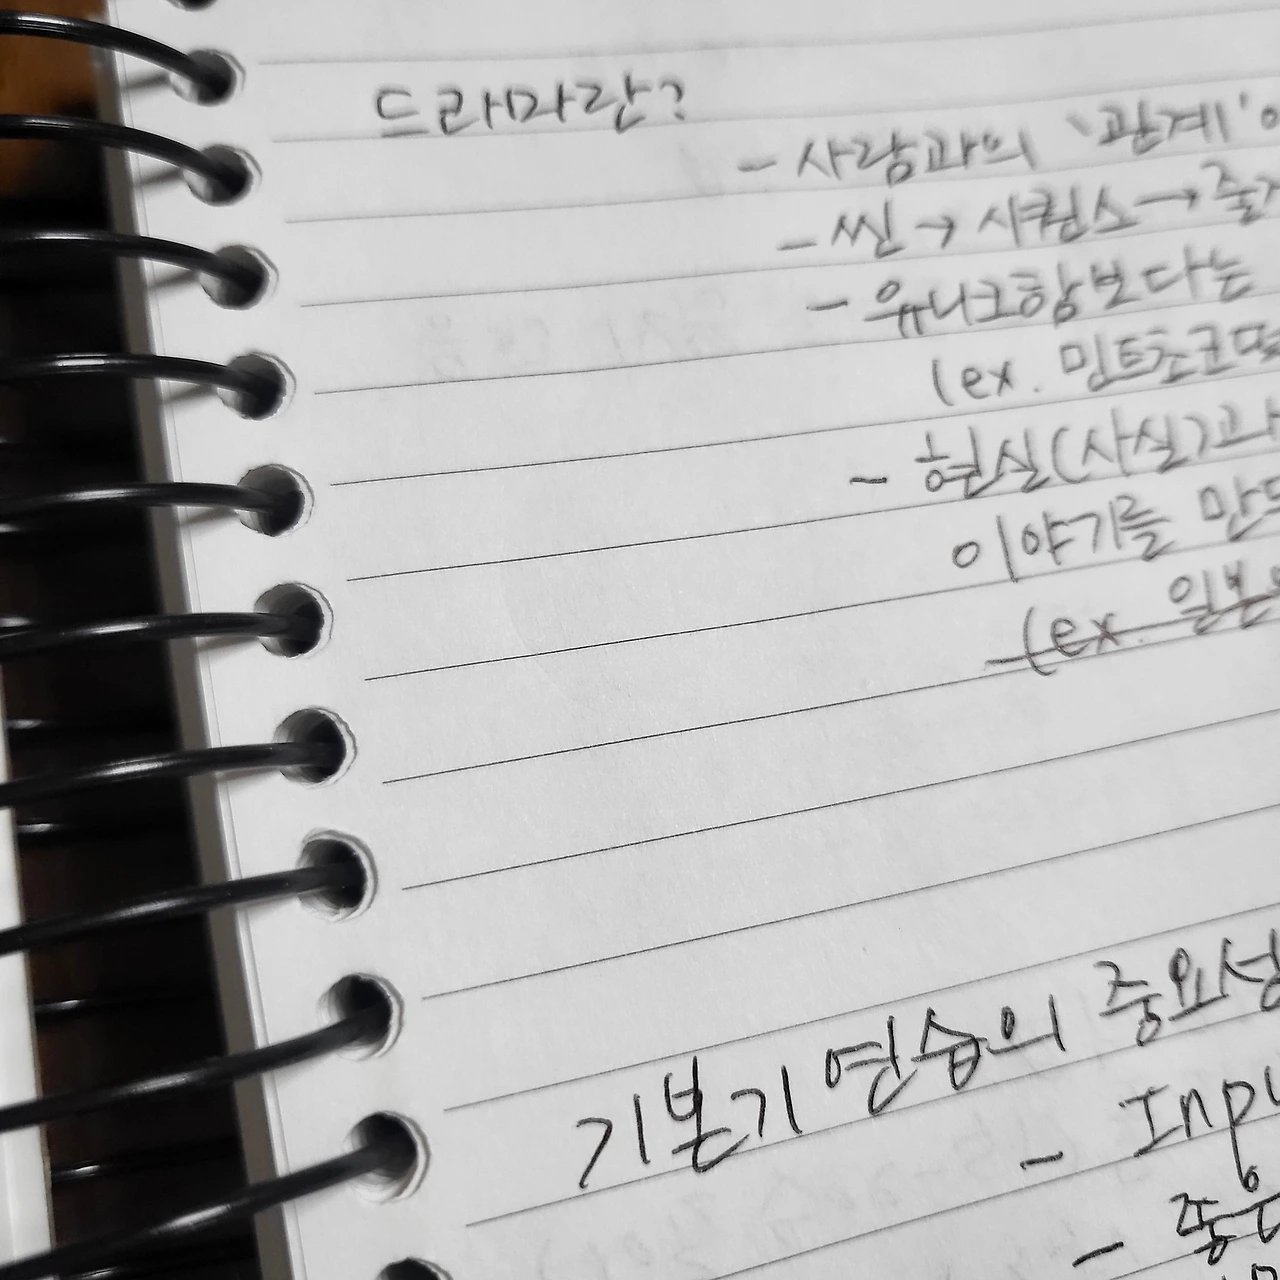 드라마란?
- 사람과의 '관계'
- 씬 → 시퀀스 →
- 유니크함보다는
(ex. 민트초코
- 현실(사실)과
이야기를
(ex.
기본기 연습의 중요성
-
-